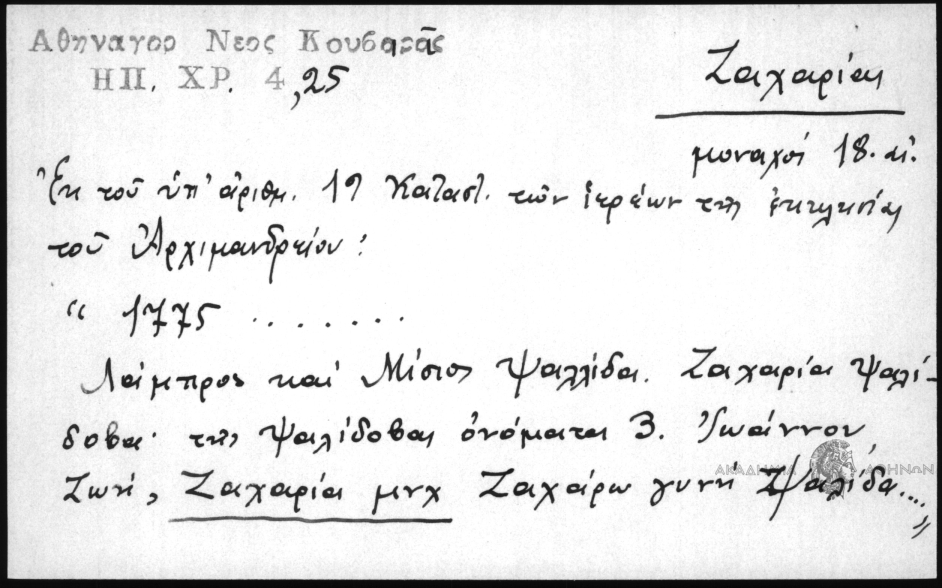 Αθηναγορ Νεος Κουβαρᾶς
ΗΠ. ΧΡ. 4,25
Ζαχαρίας
μοναχός 18. αἰ.
Ἐκ τοῦ ὑπ' ἀριθμ. 19 Καταστ. τῶν ἱερέων τῆς ἐκκλησίας
τοῦ Ἀρχιμανδρείου:
“ 1775 .......
Λάμπρος καὶ Μίσιος Ψαλλίδα. Ζαχαρίας Ψαλί-
δοβας· της Ψαλίδοβας ὀνόματα 3. Ἰωάννου
Ζωή, Ζαχαρίας μνχ Ζαχάρω γυνὴ Ψαλίδα....”
ΑΚΑΔΗΜΙΑ ΑΘΗΝΩΝ